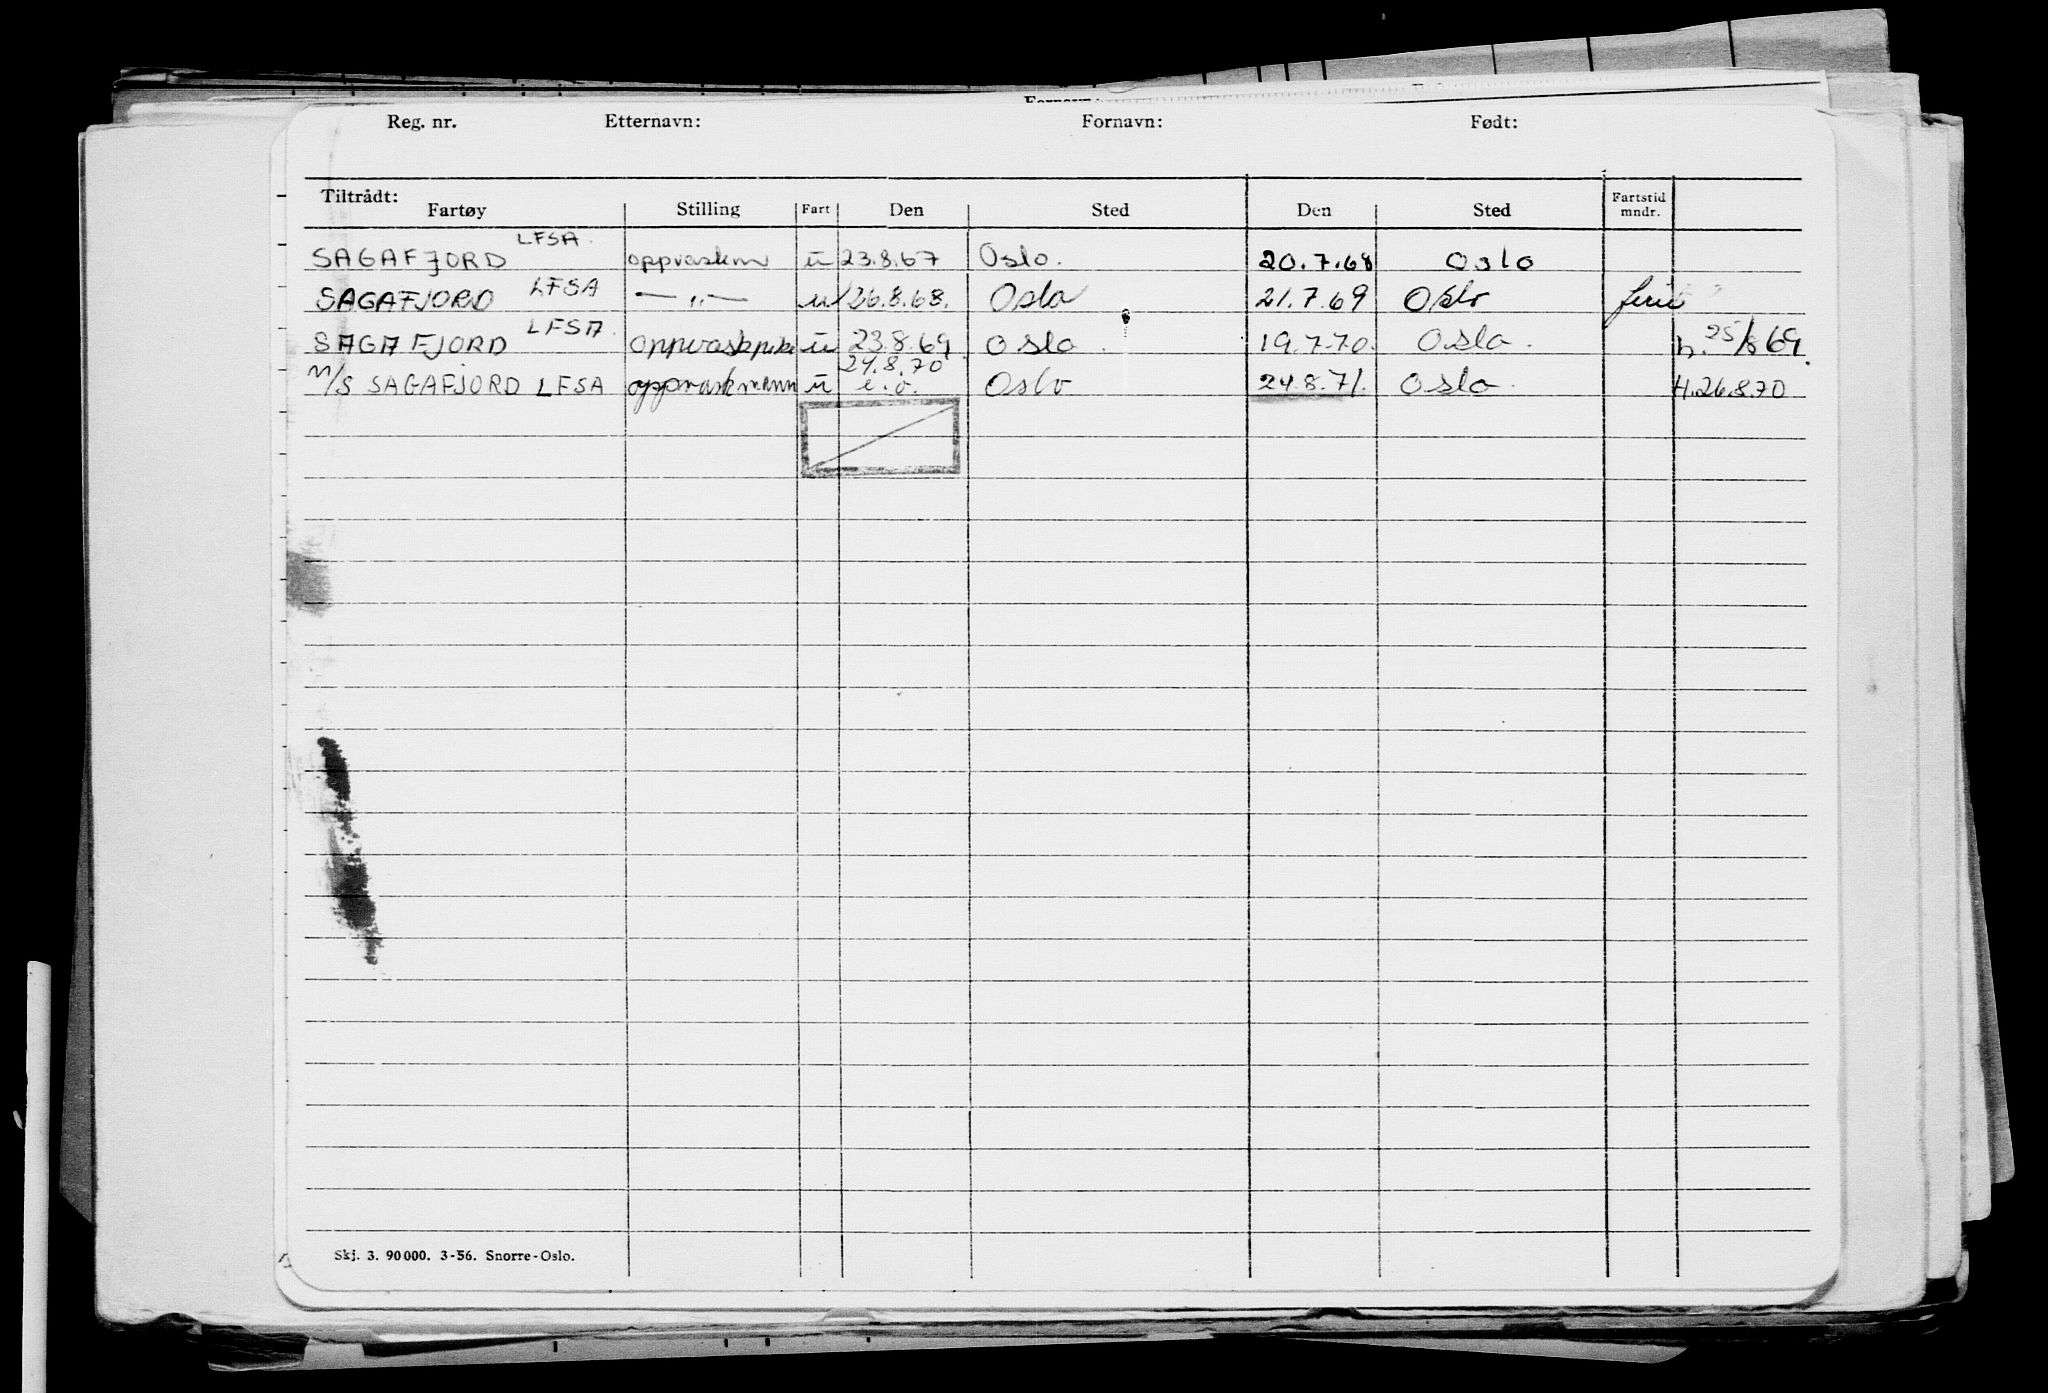 Reg. nr. Etternavn: Fornavn: Født:
Tiltrådt:
Fartøy Stilling Fart Den Sted Den Sted Fartstid mndr.
SAGAFJORD LFSA. oppvaskm u 23.8.67 Oslo. 20.7.68 Oslo
SAGAFJORD LFSA — „ — u 26.8.68. Oslo 21.7.69 Oslo ferie
SAGAFJORD LFSA. oppvaskpike u 23.8.69 Oslo. 19.7.70. Oslo. h. 25/8 69.
24.8.70
M/S SAGAFJORD LFSA oppvaskmann u e.o. Oslo 24.8.71. Oslo. H.26.8.70
Skj. 3. 90000. 3-56. Snorre-Oslo.